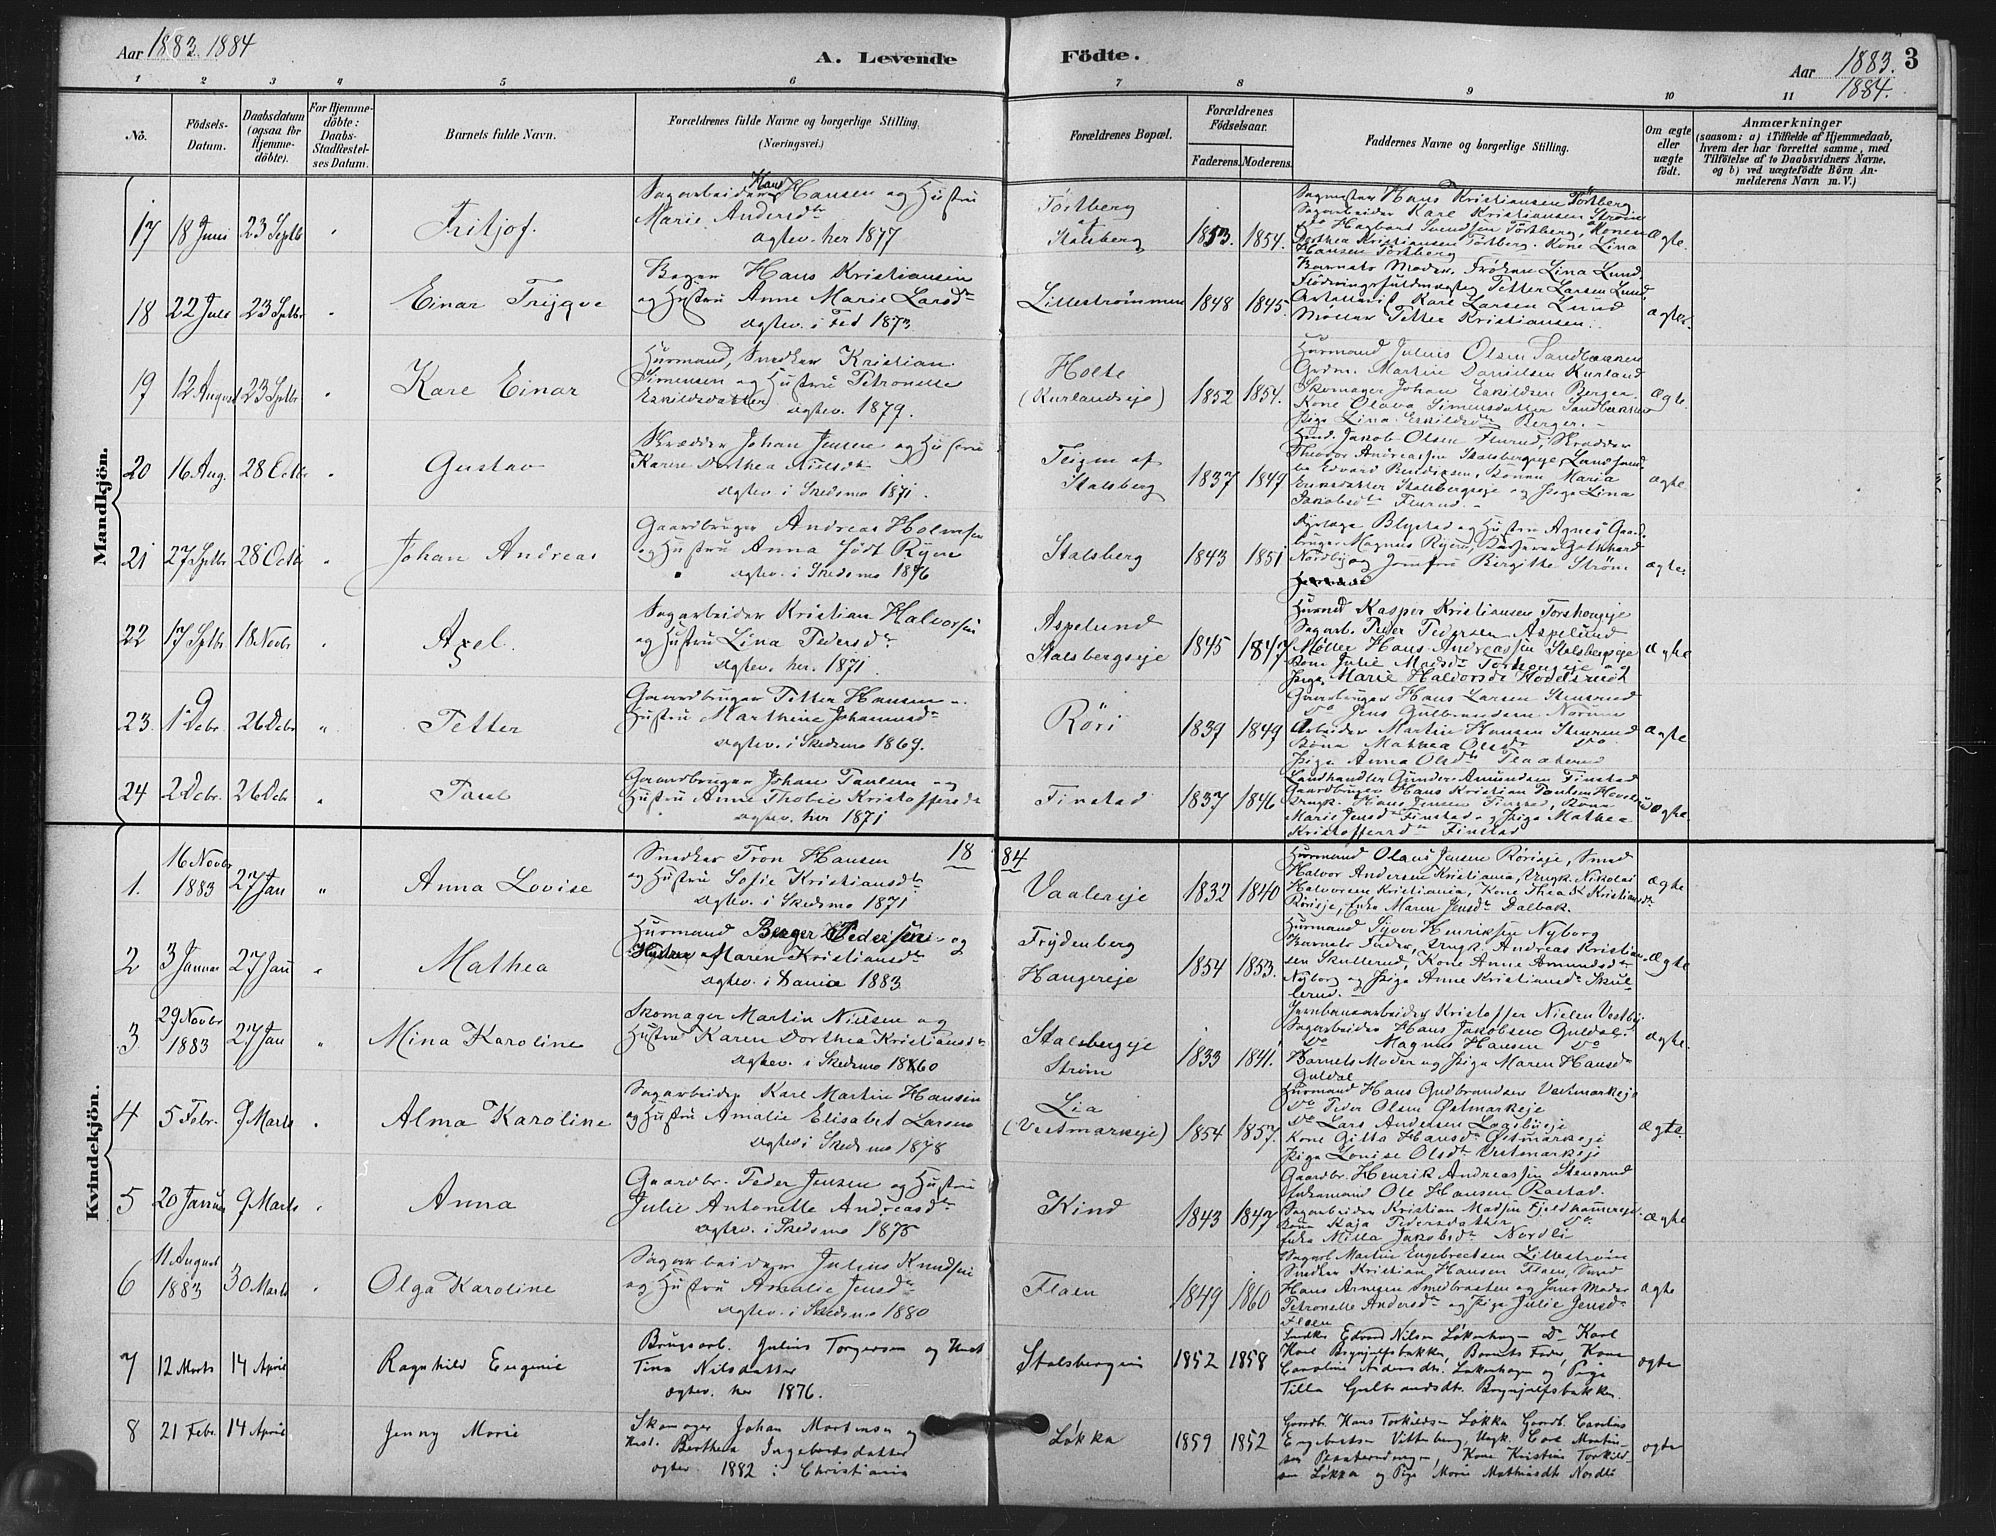 Aar 1883. 1884
A. Levende Födte.
Aar 1883. 1884.
3
1 2 3 4 5 6 7 8 9 10 11
No.
Födsels-Datum.
Daabsdatum (ogsaa for Hjemme-döbte).
For Hjemme-döbte: Daabs-Stadfæstel-ses Datum.
Barnets fulde Navn.
Forældrenes fulde Navne og borgerlige Stilling. (Næringsvei.)
Forældrenes Bopæl.
Forældrenes Födselsaar.
Faderens. Moderens.
Faddernes Navne og borgerlige Stilling.
Om ægte eller uægte födt.
Anmærkninger
(saasom: a) i Tilfælde af Hjemmedaab, hvem der har forrettet samme, med Tilföielse af to Daabsvidners Navne, og b) ved uægtefödte Börn An-melderens Navn m. V.)
Mandkjön.
17 18 Juni 23 Septb " Fritjof.
Sagarbeider Hans Hansen og Hustru
Marie Andersdtr
ægtev. her 1877
Törtberg
af
Stalsberg
1853. 1854.
Sagmester Hans Kristiansen Törtberg
Sagarbeider Karl Kristiansen Ström
Do Hagbart Svendsen Törtberg, Konen
Dorthea Kristiansen Törtberg. Kone Lina
Hansen Törtberg
ægte.
18 22 Juli 23 Sptbr " Einar Trygve
Bager Hans Kristiansen
og Hustru Anne Marie Larsdtr
ægtev. i Fed 1873
Lilleströmmen
1848 1845.
Barnets Moder. Fröken Lina Lund.
Flödningsfuldmægtig Petter Larsen Lund
Karl Larsen Lund
Møller Petter Kristiansen.
ægte.
19 12 August 23 Sptbr " Karl Einar
Husmand, Snedker Kristian
Simensen og Hustru Petronelle
Eskildsdatter ægtev. 1879.
Holte
(Kurlandseje)
1852 1854.
Husmand Julius Olsen Sandbækken
Grdm. Martin Danielsen Kurland
Skomager Johan Eskildsen Berger
Kone Olava Simensdatter Sandbækken
Pige Lina Eskildsdtr Berger.
ægte.
20 16 Aug. 28 Octbr " Gustav
Skrædder Johan Jensen og Hustru
Karen Dorthea Nielsdtr
ægtev. i Skedsmo 1871.
Teigen af
Stalsberg
1837 1847
Husm. Jakob Olsen Flurud, Skrædder
Theodor Andreassen Stalsbergeje, Landhand-
Edvard Bendigsen, Konen Maria
Eriksdatter Stalsbergeje og Pige Lina
Jakobsdtr Flurud.
ægte
21 27 Sptbr 28 Octb " Johan Andreas
Gaardbruger Andreas Holmsen
og Hustru Anna Født Ryen
ægtev. i Skedsmo 1876
Stalsberg
1843 1851
Blystad og Hustru Agnes Gaard-
bruger Magnus Ryen, Gothhard
Nordby og Jomfru Birgitte Ström
ægte.
22 17 Sptbr 18 Novbr " Axel.
Sagarbeider Kristian Halvorsen
og Hustru Lina Pedersdtr
ægtev. her. 1871.
Aspelund
Stalsbergseje
1845 1847
Husmd Kasper Kristiansen Torshovseje
Sagarb. Peder Pedersen Aspelund
Møller Hans Andreassen Stalsbergseje
Kone Julie Madsdtr Torshovgeje og
Pige Marie Halvorsdtr
ægte
23 1 Decbr 26 Decbr " Petter
Gaardbruger Petter Hansen og
Hustru Marthine Johannesdtr
ægtev. i Skedsmo 1869.
Röri
1839 1849
Gaardbruger Hans Larsen Stenerud
Do Jens Gulbrandsen Norum
Arbeider Martin Hansen Stenerud
Kone Mathea Olsdtr Do
Pige Anna Olsdtr
ægte
24 2 Dcbr. 26 Dcbr " Paul
Gaardbruger Johan Paulsen og
Hustru Anne Thobie Kristoffersdtr
ægtev. her 1871
Finstad
1837 1846
Landhandler Gunder Amundsen Finstad
Gaardbruger Hans Kristian Paulsen
Ungk. Hans Jensen Finstad, Kone
Marie Jensdtr Finstad og Pige Mathea
Kristoffersdtr Finstad
ægte.
18 84
Kvindekjön.
1. 16 Novbr 1883 27 Jan " Anna Lovise
Snedker Tron Hansen
og Hustru Sofie Kristiansdtr
ægtev. i Skedsmo 1871
Vaalereje
1832 1840
Husmand Olaus Jensen Rörieje, Smed
Halvor Andersen Kristiania, Ungk. Nikolai
Halvorsen Kristiania, Kone Thea Kristiansdtr
Rörieje, Enke Maren Jensdtr Dalbak.
ægte
2 3 Januar 27 Jan " Mathea
Husmand Berger Pedersen og
Hustru Maren Kristiansdtr
ægtev. i Dania 1883
Frydenberg
Haugereje
1854 1853.
Husmand Syver Henriksen Nyborg
Barnets Fader, Ungk. Andreas Kristian-
sen Skullerud, Kone Anne Amundsdtr
Nyborg og Pige Anne Kristiansdtr Skul-
lerud.
ægte
3. 29 Novbr 1883 27 Jan " Mina Karoline
Skomager Martin Nielsen og
Hustru Karen Dorthea Kristiansdtr
ægtev. i Skedsmo 1860
Stalsbergeje
Ström
1833 1841.
Jernbanearbeider Kristoffer Nielsen Vestby
Sagarbeider Hans Jakobsen Guldal
Do Magnus Hansen Do
Barnets Moder og Pige Maren Hansdtr
Guldal
ægte.
4 5 Febr. 9 Marts " Alma Karoline
Sagarbeider Karl Martin Hansen
og Hustru Amalie Elisabet Larsen
ægtev. i Skedsmo 1878
Lia
(Vestmarkeje)
1854 1857.
Husmand Hans Gudbrandsen Vestmarkeje
Do Peder Olsen Østmarkeje
Do Lars Andersen
Kone Gitta Hansdtr Østmarkeje
Pige Lovise Olsdtr Vestmarkeje
ægte.
5 20 Januar 9 Marts " Anna
Gaardbr. Peder Jensen og Hustru
Julie Antonette Andreasdtr
ægtev. i Skedsmo 1875
Kind
1843 1847
Gaardbr. Henrik Andreassen Stenerud
Enkemand Ole Hansen Rastad.
Sagarbeider Kristian Madsen Fjeldhammereje
Kone Kaja Pedersdatter Do
Enke Milla Jakobsdtr Nordli
ægte
6 11 August 1883 30 Marts " Olga Karoline
Sagarbeider Julius Knudsen
og Hustru Amalie Jensdtr
ægtev. i Skedsmo 1880
Flaen
1849 1860
Sagarb Martin Engebretsen Lilleström
Snedker Kristian Hansen Flaen, Smed
Hans Arnesen Smedbraaten og Jens Moder
Petronelle Andersdtr og Pige Julie Jensdtr
Flaen
ægte
7 12 Marts 14 April Ragnhild Eugenie
Brugsarb. Julius Torgersen og Hust
Tina Nilsdatter
ægtev. her 1876.
Stalsbergeie
1852 1858
Snedker Edvard Nilsen Løkenhagen Do Karl
Karl Brynjulfsbakken, Barnets Fader, Kone
Caroline Andersdtr. Løkenhagen og Pige
Tilla Gulbrandsdtr. Brynjulfsbakken.
ægte
8 21 Febr. 14 April Jenny Marie
Skomager Johan Mortensen og
Hust. Berthea Ingebertsdatter
ægtev 1882 i Christiania
Løkka
1859 1852
Gaardb. Hans Torkildsen Løkka Gaardb. Carelius
Engebretsen Vittenberg, Ungk. Carl Martin-
sen Kone Kristine Torkild-
sen Løkka og Pige Marie Mathisdtr Nordli
ægte